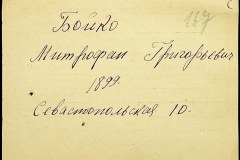 Бойко
Митрофан Григорьевич
1899
Севастопольская 10.